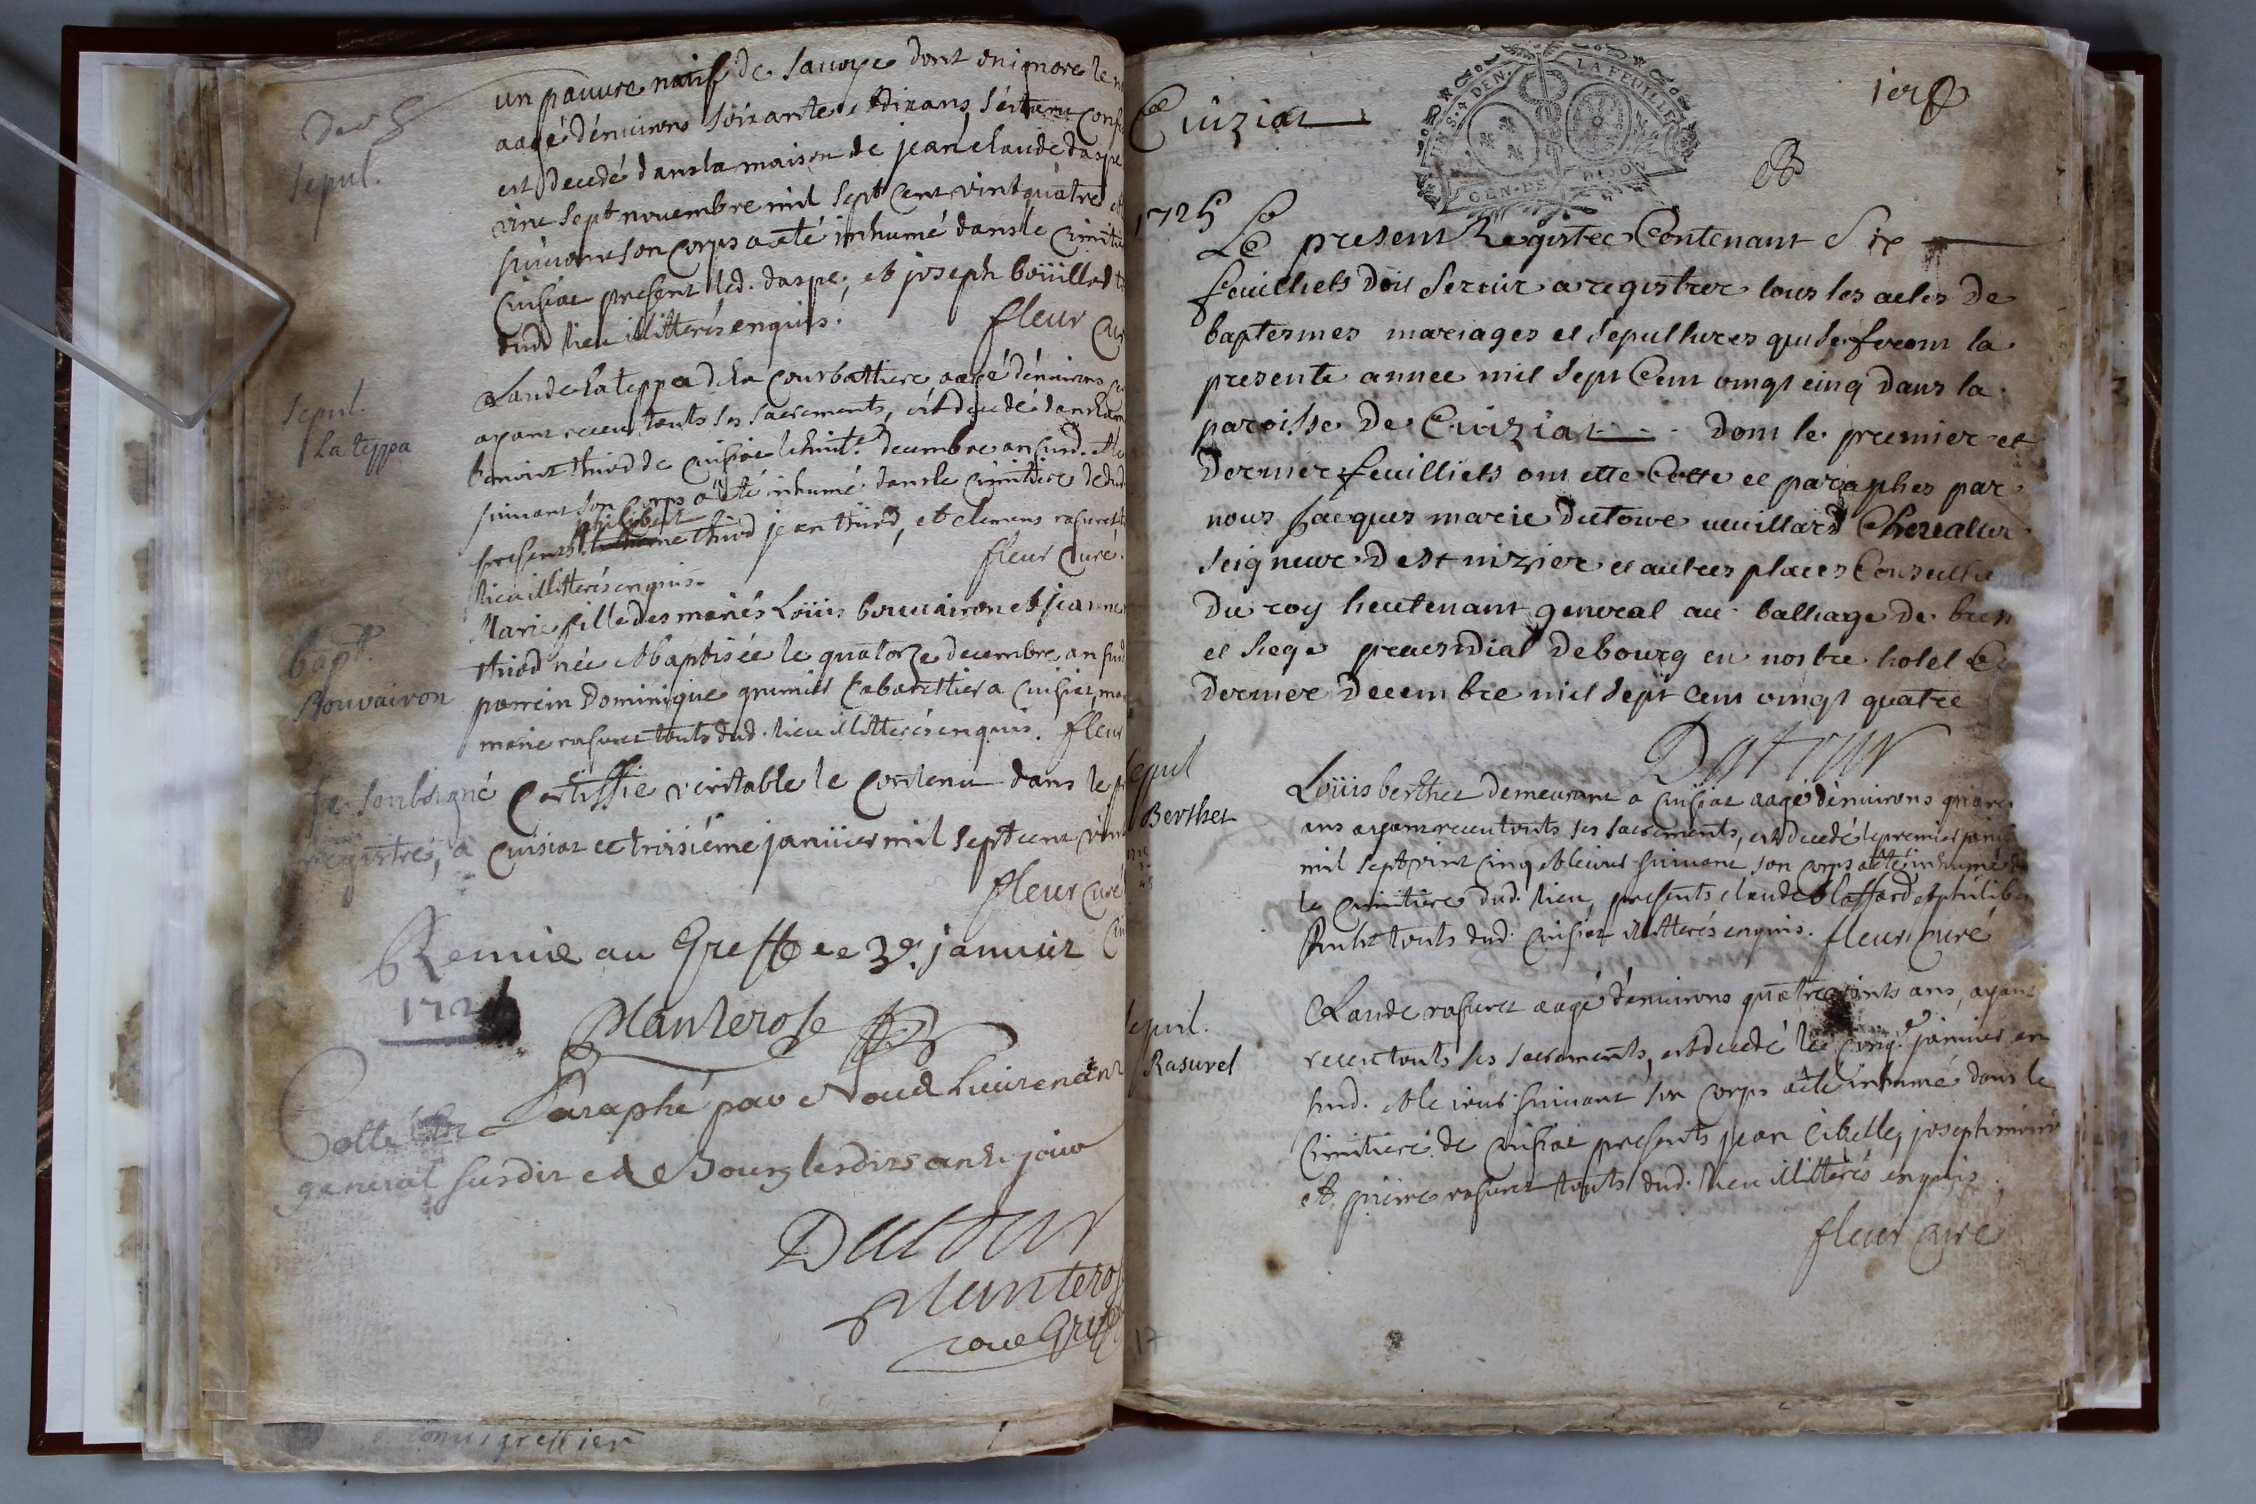 Dec 8
sepul.
un pauvre natif de Savoye dont on ignore le
aagé d'environs soixante et dix ans, s'étant
est decedé dans la maison de jean claude daspe
vint sept novembre mil sept cent vint quatre et
suivant son corps a été inhumé dans le cimitie
Cuisiat present led. daspe, et joseph boüillod
dud. lieu illitterés enquis. fleur Cur
sepul.
La teppa
Claude La teppa de la Courbattiere, aagé d'environs
ayant receu touts ses sacrements, est decedé dans la
benoist thiod de Cuisiat le huit.e decembre an susd. et le
suivant son corps a été inhumé dans le cimitiere dudit
philibert
presents thiod jean thiod, et clemens rasurel
lieu illitterés enquis. fleur Curé.
bapt.
Bouvairon
Marie fille des mariés Loüis bouvairon et jeanne
thiod née et baptisée le quatorze decembre an susd
parrein Dominique grumier Cabarettier a Cuisiat, mar
marie rasurel touts dud. lieu illitterés enquis. fleur
Je soubsigné Certiffie veritable le Contenu dans le p
registre, a Cuisiat ce troisiéme janvier mil sept cent vint
fleur Curé
Remie au Greffe ce 3e. janvier
172
Manterose
Cotté Paraphé par Nous Lieutenant
general susdit les dits an et jour
Dutour
Manterose
comis greffier
Cuiziat
UN S. 4 DEN. LA FEUILLE
GEN. DE DIJON
1er
1725
Le present Registre Contenant Six
feuilliets doit servir a registrer tous les actes de
baptesmes mariages et sepultures qui se feront la
presente annee mil sept Cent vingt cinq dans la
paroisse de Cuiziat dont le premier et
dernier feuilliets ont ette Cotte et paraphes par
nous Jacques marie Dutour vuillard Chevalier
seigneur de St nizier et autres places Conseillie
du roy lieutenant general au balliage de bres
et siege praesidial de bourg en nostre hotel
dernier decembre mil sept cent vingt quatre
Dutour
sepul
Berthet
Loüis berthet demeurant a Cuisiat aagé d'environs quara
ans ayant receu touts ses sacrements, est decedé le premier janv
mil sept vint cinq et le jour suivant son corps a été inhumé d
le cimitiere dud. lieu, presents claude blaffard et philiber
touts dud. Cuisiat illitterés enquis. fleur Curé
sepul.
Rasurel
Claude rasurel aagé d'environs quatre vints ans, ayant
receu touts ses sacrements, est decedé le cinq.e janvier an
susd. et le jour suivant son corps a été inhumé dans le
cimitiere de Cuisiat presents jean Cibelle, joseph
et pierre rasurel touts dud. lieu illitterés enquis.
fleur Curé
17